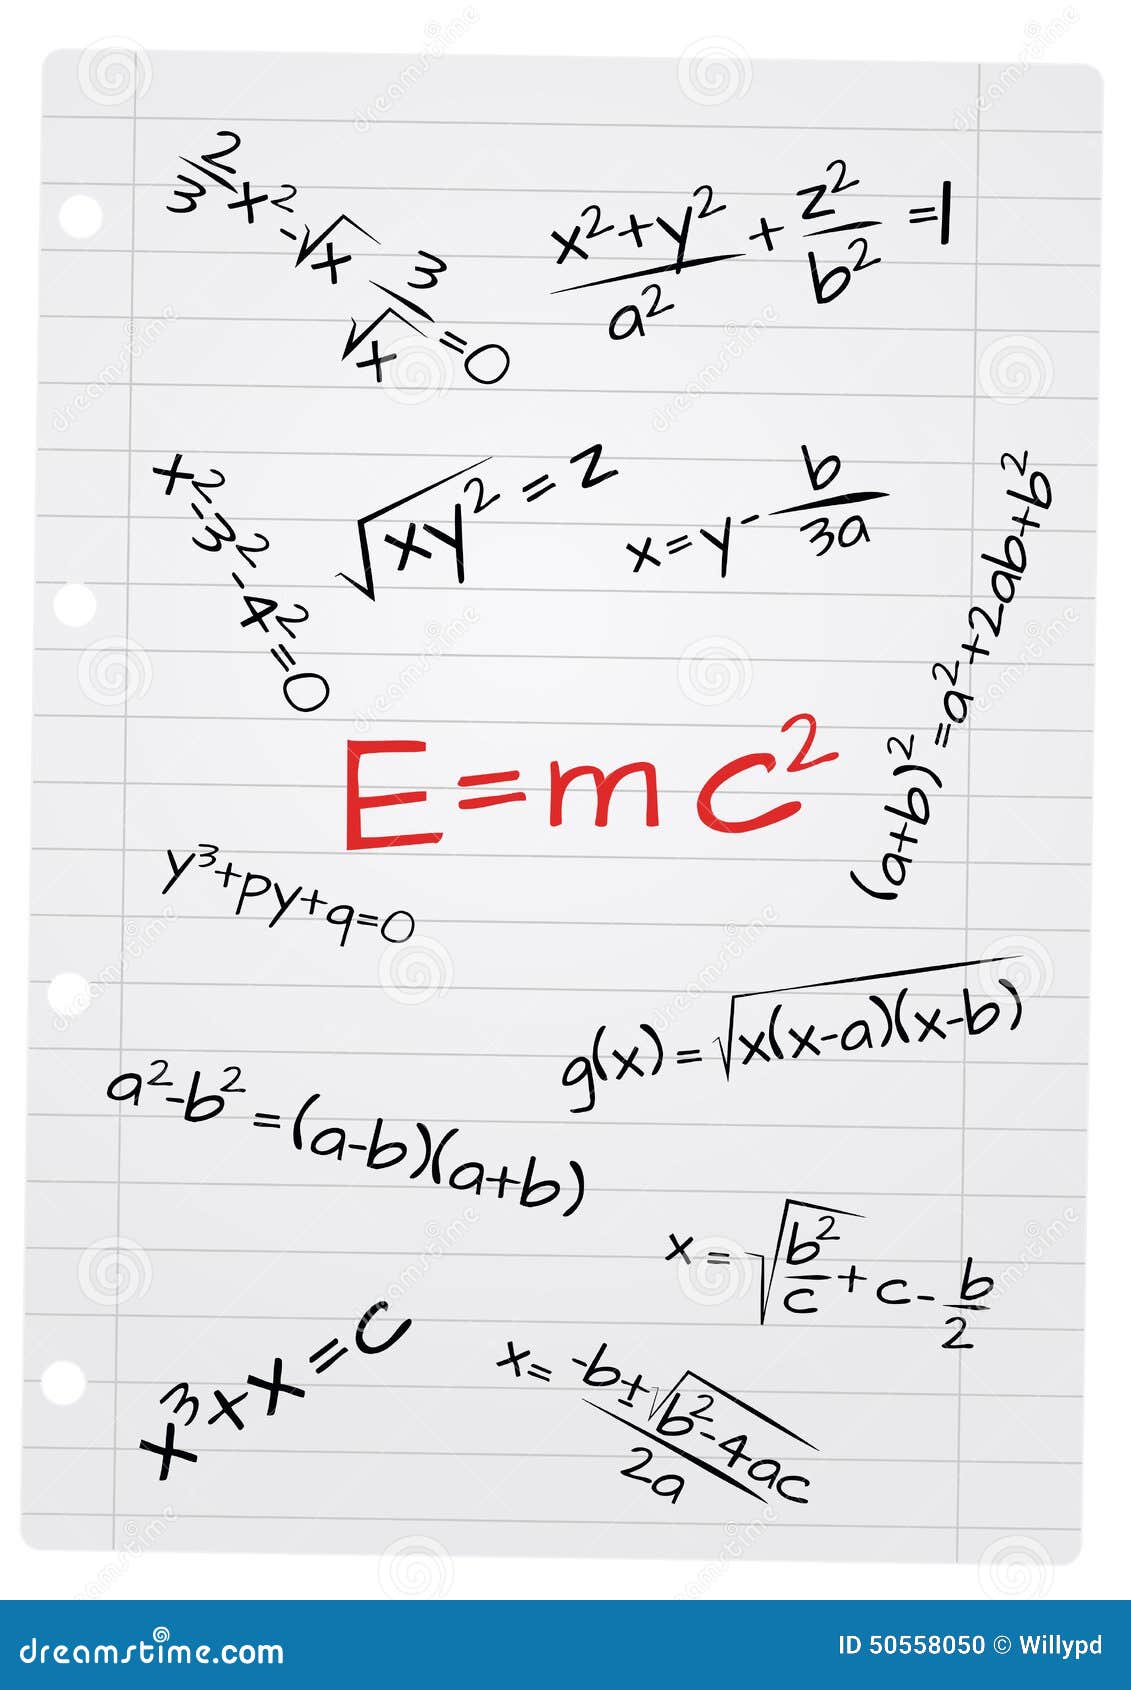 2/3 x² - √x 3/√x = 0
(x² + y²)/a² + z²/b² = 1
x² - 3² - 4² = 0
√xy² = z
x = y - b/3a
(a+b)² = a² + 2ab + b²
E = mc²
y³ + py + q = 0
g(x) = √x(x-a)(x-b)
a² - b² = (a-b)(a+b)
x = √b²/c + c - b/2
x³ x x = c
x = (-b ± √b² - 4ac)/2a
dreamstime.com
ID 50558050 © Willypd